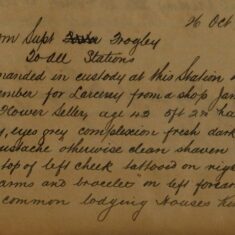 26 Oct
om Supt Frogley
To all Stations
manded in custody at this Station
ember for Larceny from a shop Jam
Flower Seller, age 42 5ft 2in ha
y, eyes grey complexion fresh dark
oustache otherwise clean shaven
top of left cheek tattooed on rig
arms and bracelet on left forear
common lodging Houses